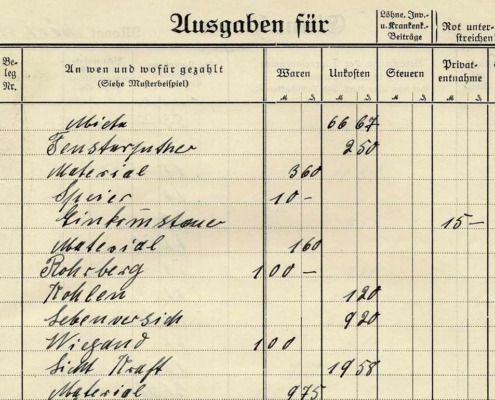 Ausgaben für
Löhne, Inv.-
u. Krankenk.-
Beiträge
Rot unter-
streichen!
Be-
leg
Nr.
An wen und wofür gezahlt
(Siehe Musterbeispiel)
Waren
Unkosten
Steuern
Privat-
entnahme
M ₰ M ₰ M ₰ M ₰
Miete 66 67
Fensterputzer 2 50
Material 3 60
Speier 10 –
Einkomsteuer 15 –
Material 1 60
Rohrberg 100 –
Kohlen 1 20
Lebenversich 9 20
Wiegand 1 00
Licht Kraft 19 58
Material 9 75